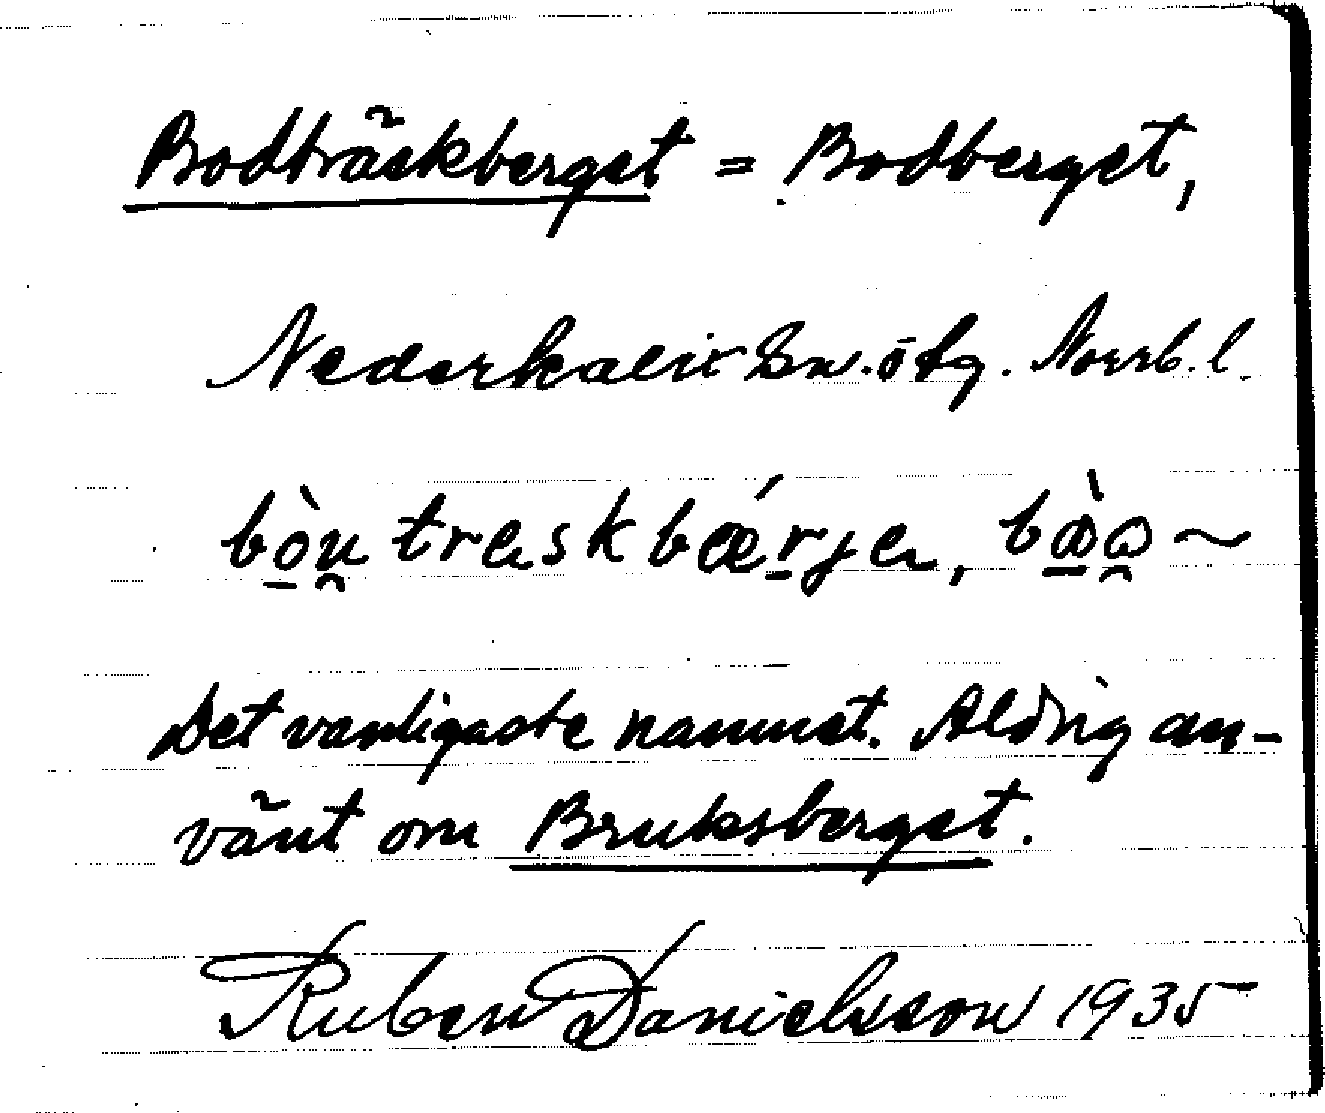 Bodträskberget = Bodberget,
Nederkalix sn. östg. Norrb. l.
bò̱u̯treskbǽṟje, bò̱ɷ̯~
Det vanligaste namnet. Aldrig an-
vänt om Bruksberget.
Ruben Danielsson 1935